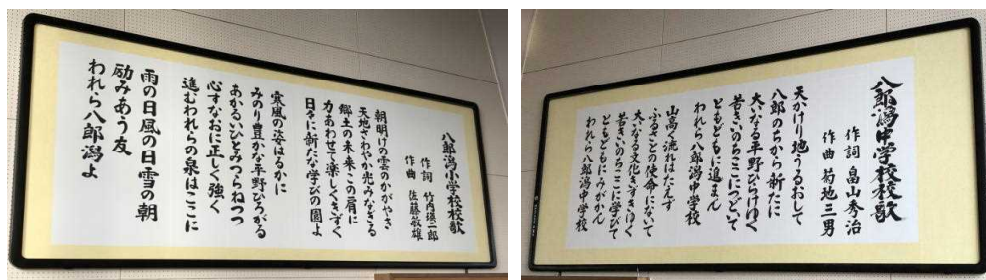 八郎潟小学校校歌
作詞 竹内瑛二郎
作曲 佐藤敏雄
朝明けの雲のかがやき
天地さわやか光みなぎる
郷土の未来この肩に
力あわせて楽しくきずく
日々に新たな学びの園よ
寒風の姿はるかに
みのり豊かな平野ひろがる
あかるいひとみつらねつつ
心すなおに正しく強く
進むわれらの泉はここに
雨の日風の日雪の朝
励みあう友
われら八郎潟よ
八郎潟中学校校歌
作詞 畠山秀治
作曲 菊地三男
天かけり地うるおして
八郎のちから新たに
大いなる平野ひらけゆく
若きいのちここにつどいて
ともどもに進まん
われら八郎潟中学校
山高く流れはたえず
ふるさとの使命にないて
大いなる文化きずきゆく
若きいのちここに学びて
ともどもにみがかん
われら八郎潟中学校